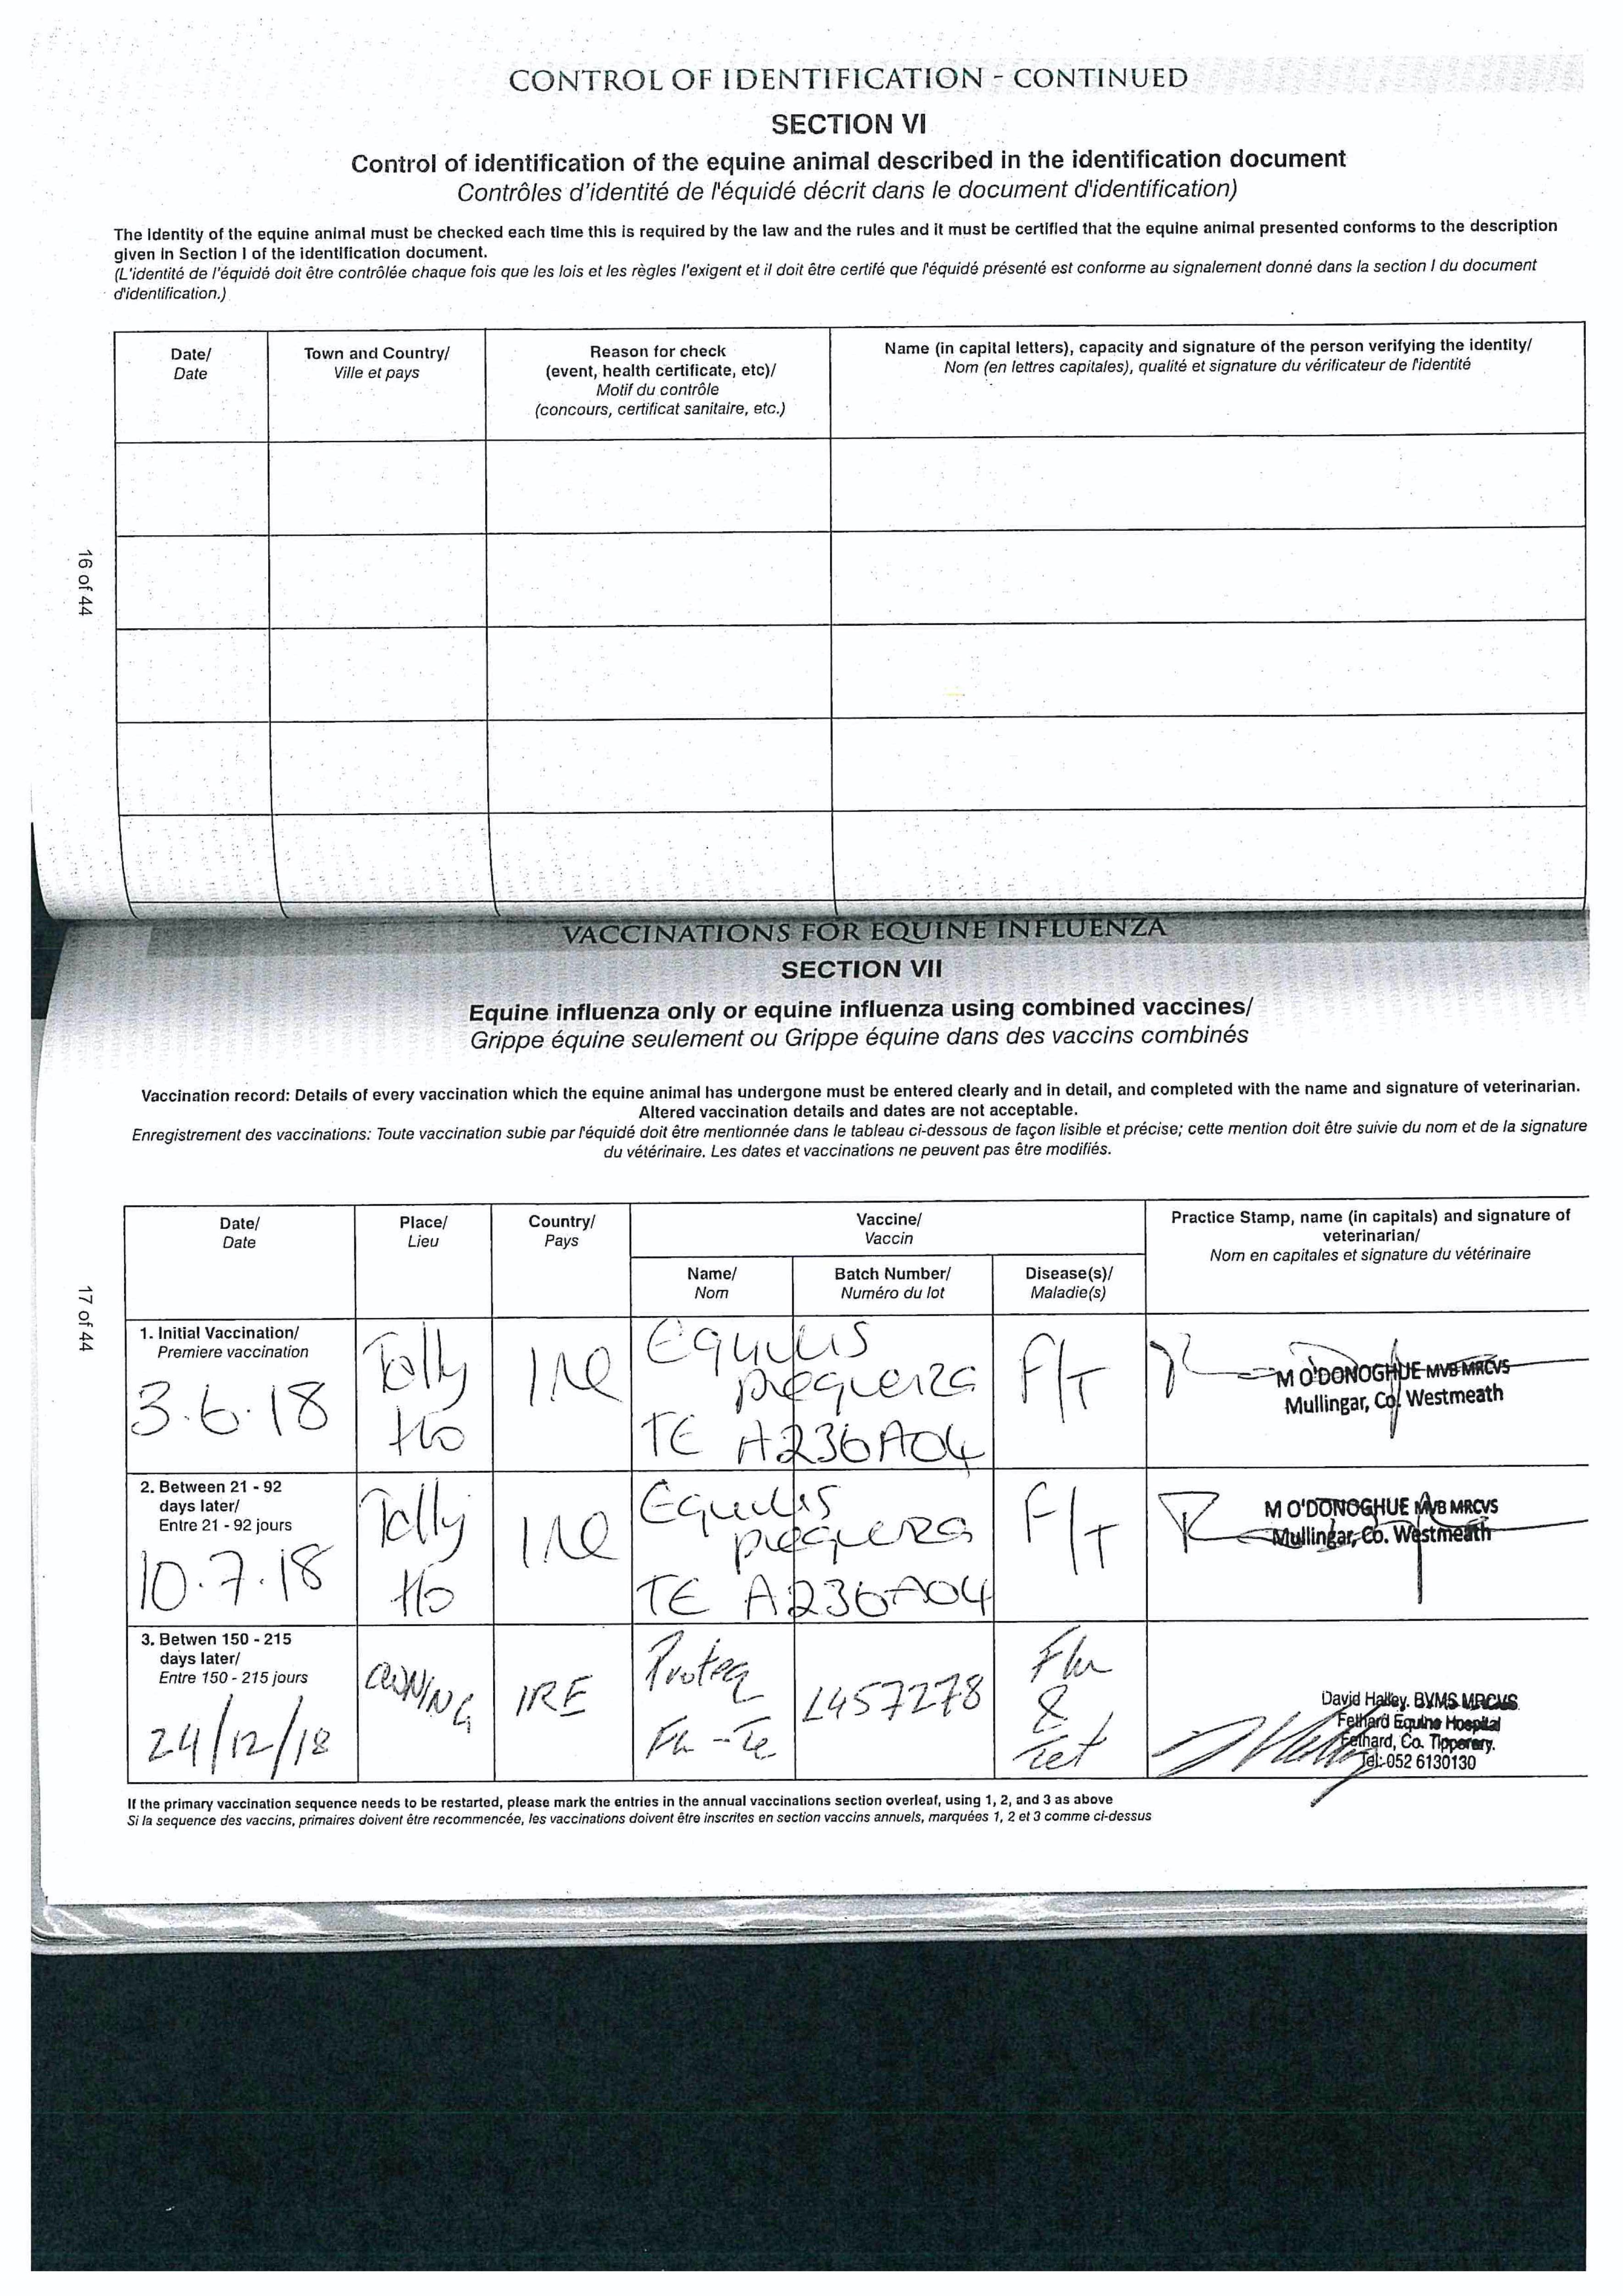 CONTROL OF IDENTIFICATION - CONTINUED
SECTION VI
Control of identification of the equine animal described in the identification document
Contrôles d'identité de l'équidé décrit dans le document d'identification)
The Identity of the equine animal must be checked each time this is required by the law and the rules and it must be certified that the equine animal presented conforms to the description
given in Section I of the identification document.
(L'identité de l'équidé doit être contrôlée chaque fois que les lois et les règles l'exigent et il doit être certifé que l'équidé présenté est conforme au signalement donné dans la section I du document
d'identification.)
Date/
Date
Town and Country/
Ville et pays
Reason for check
(event, health certificate, etc)/
Motif du contrôle
(concours, certificat sanitaire, etc.)
Name (in capital letters), capacity and signature of the person verifying the identity/
Nom (en lettres capitales), qualité et signature du vérificateur de l'identité
16 of 44
VACCINATIONS FOR EQUINE INFLUENZA
SECTION VII
Equine influenza only or equine influenza using combined vaccines/
Grippe équine seulement ou Grippe équine dans des vaccins combinés
Vaccination record: Details of every vaccination which the equine animal has undergone must be entered clearly and in detail, and completed with the name and signature of veterinarian.
Altered vaccination details and dates are not acceptable.
Enregistrement des vaccinations: Toute vaccination subie par l'équidé doit être mentionnée dans le tableau ci-dessous de façon lisible et précise; cette mention doit être suivie du nom et de la signature
du vétérinaire. Les dates et vaccinations ne peuvent pas être modifiés.
Date/
Date
Place/
Lieu
Country/
Pays
Vaccine/
Vaccin
Name/
Nom
Batch Number/
Numéro du lot
Disease(s)/
Maladie(s)
Practice Stamp, name (in capitals) and signature of
veterinarian/
Nom en capitales et signature du vétérinaire
17 of 44
1. Initial Vaccination/
Premiere vaccination
3.6.18
Tally
Ho
IRE
Equilis
prequenza
TE A236A04
F/T
M O'DONOGHUE MVB MRCVS
Mullingar, Co. Westmeath
2. Between 21 - 92
days later/
Entre 21 - 92 jours
10.7.18
Tally
Ho
IRE
Equilis
prequenza
TE A236A04
F/T
M O'DONOGHUE MVB MRCVS
Mullingar, Co. Westmeath
3. Betwen 150 - 215
days later/
Entre 150 - 215 jours
24/12/18
OWNING
IRE
Proteq
Flu-Te
L457278
Flu
&
Tet
David Halley. BVMS MRCVS
Fethard Equine Hospital
Fethard, Co. Tipperary.
Tel: 052 6130130
If the primary vaccination sequence needs to be restarted, please mark the entries in the annual vaccinations section overleaf, using 1, 2, and 3 as above
Si la sequence des vaccins, primaires doivent être recommencée, les vaccinations doivent être inscrites en section vaccins annuels, marquées 1, 2 et 3 comme ci-dessus